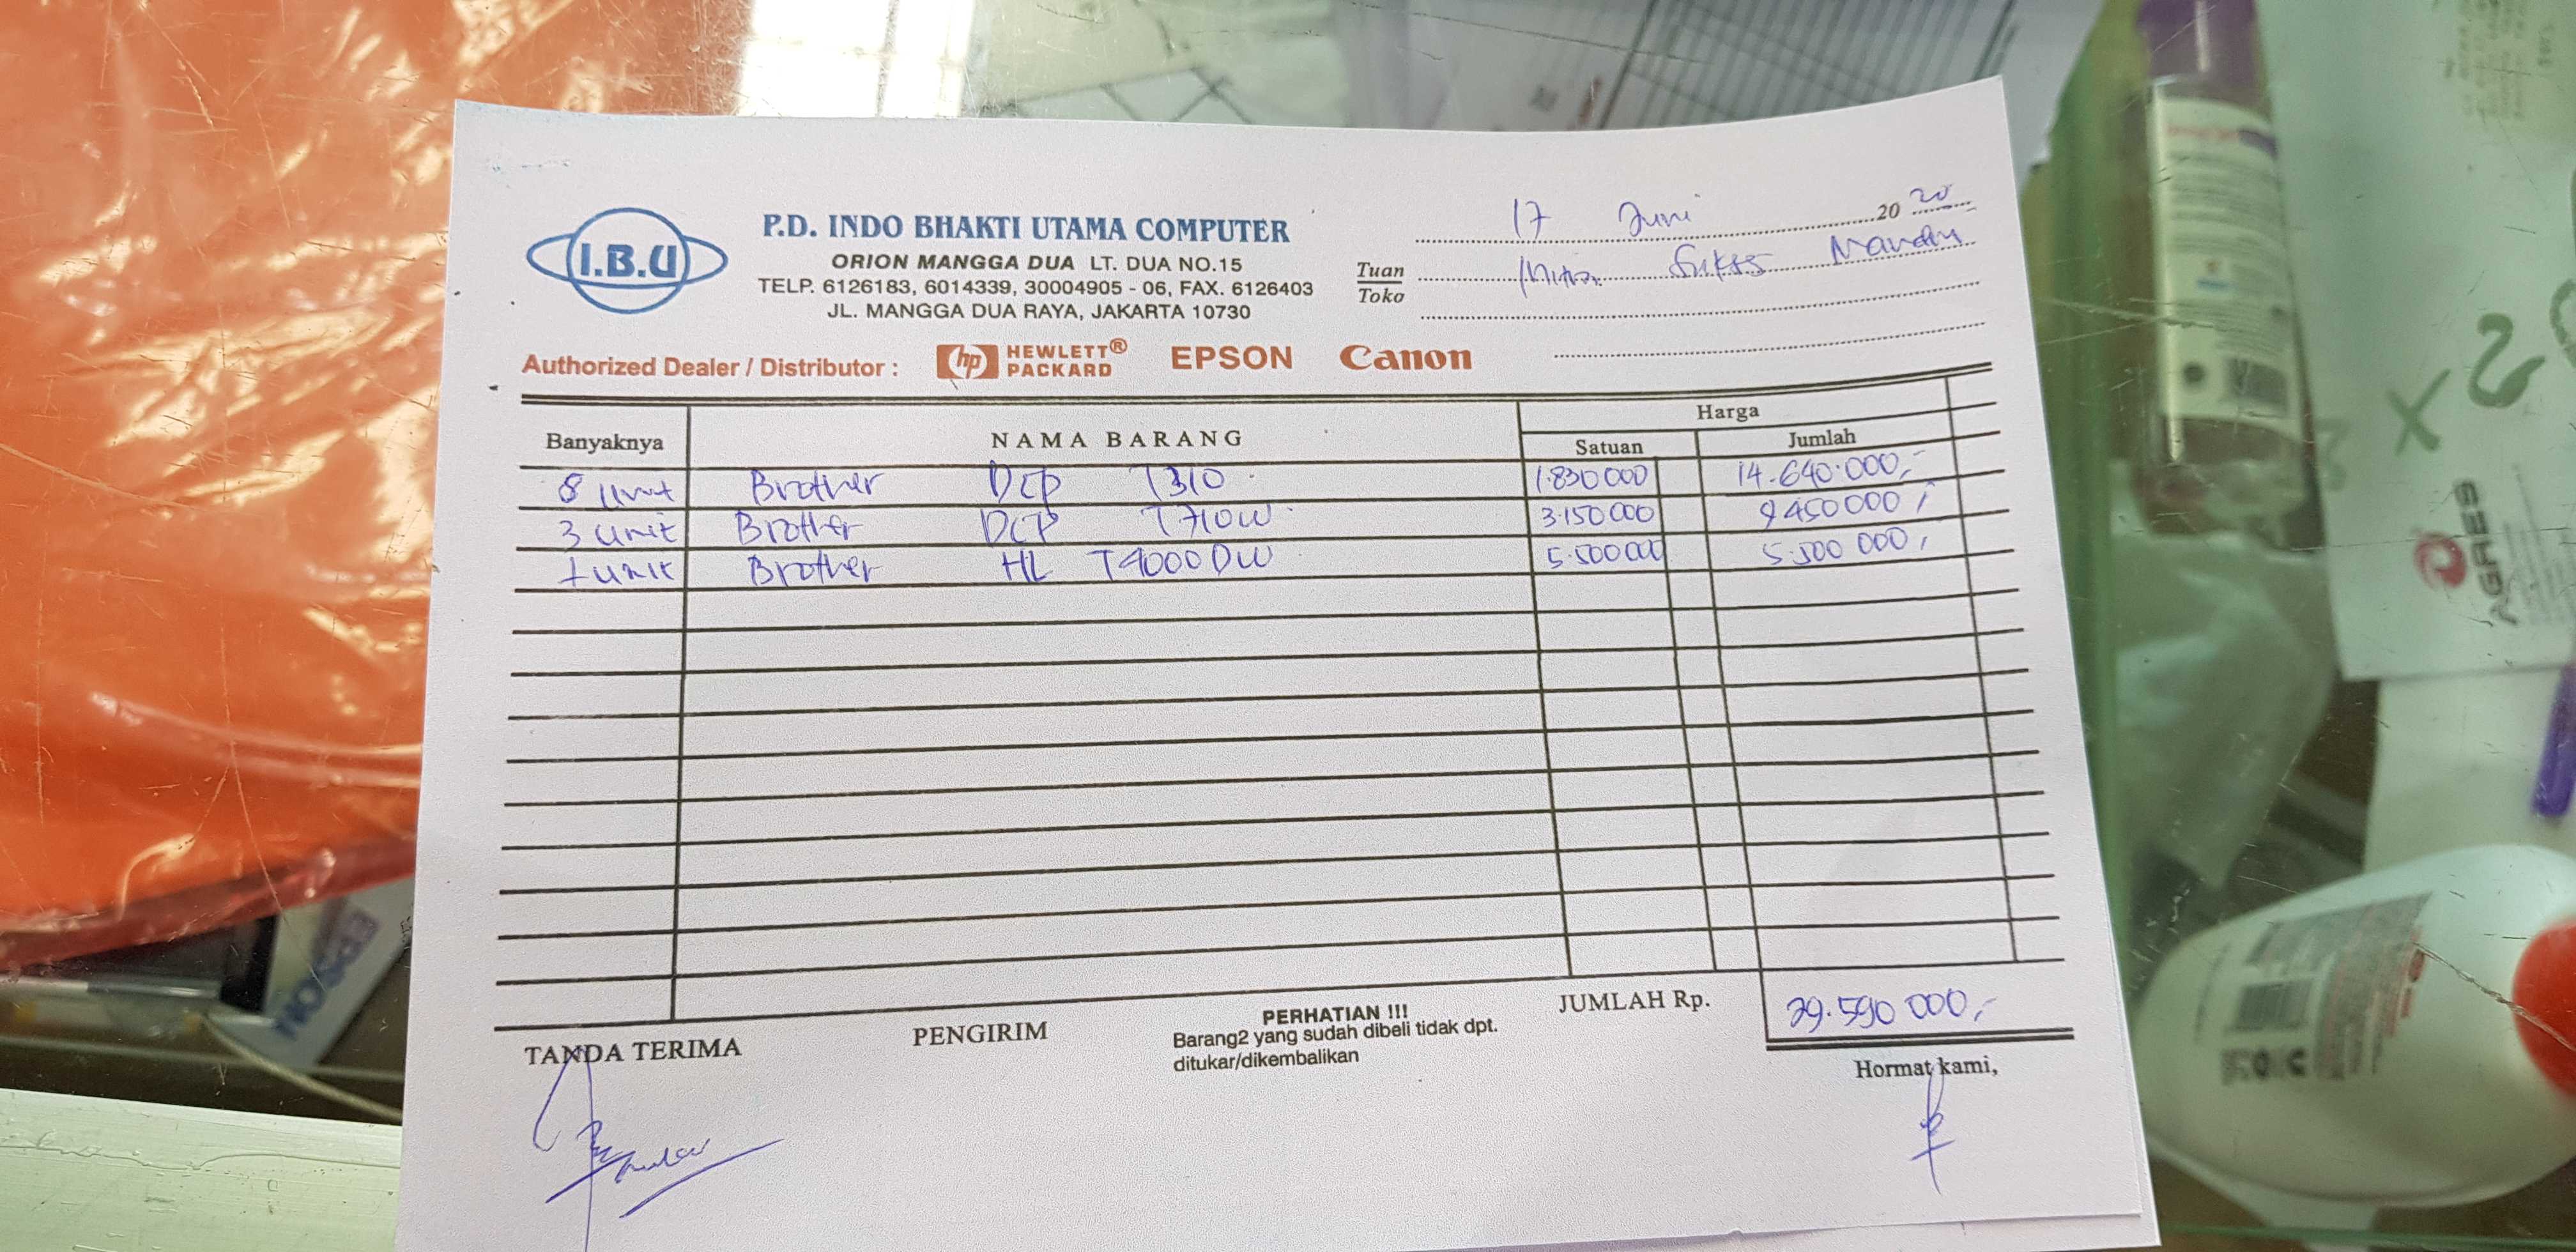 I.B.U
P.D. INDO BHAKTI UTAMA COMPUTER
ORION MANGGA DUA LT. DUA NO.15
TELP. 6126183, 6014339, 30004905 - 06, FAX. 6126403
JL. MANGGA DUA RAYA, JAKARTA 10730
17 Juni 20 20
Tuan
Toko
Mitra Sukses Mandiri
Authorized Dealer / Distributor : hp HEWLETT® PACKARD EPSON Canon
Banyaknya NAMA BARANG Harga
Satuan Jumlah
8 unit Brother DCP T310 1.830 000 14.640.000,-
3 unit Brother DCP T710W 3.150 000 9 450 000,
1 unit Brother HL T4000 DW 5.500 000 5.500 000,
JUMLAH Rp. 29.590 000,-
TANDA TERIMA
PENGIRIM
PERHATIAN !!!
Barang2 yang sudah dibeli tidak dpt.
ditukar/dikembalikan
Hormat kami,
AGRES
EPSON
x 2